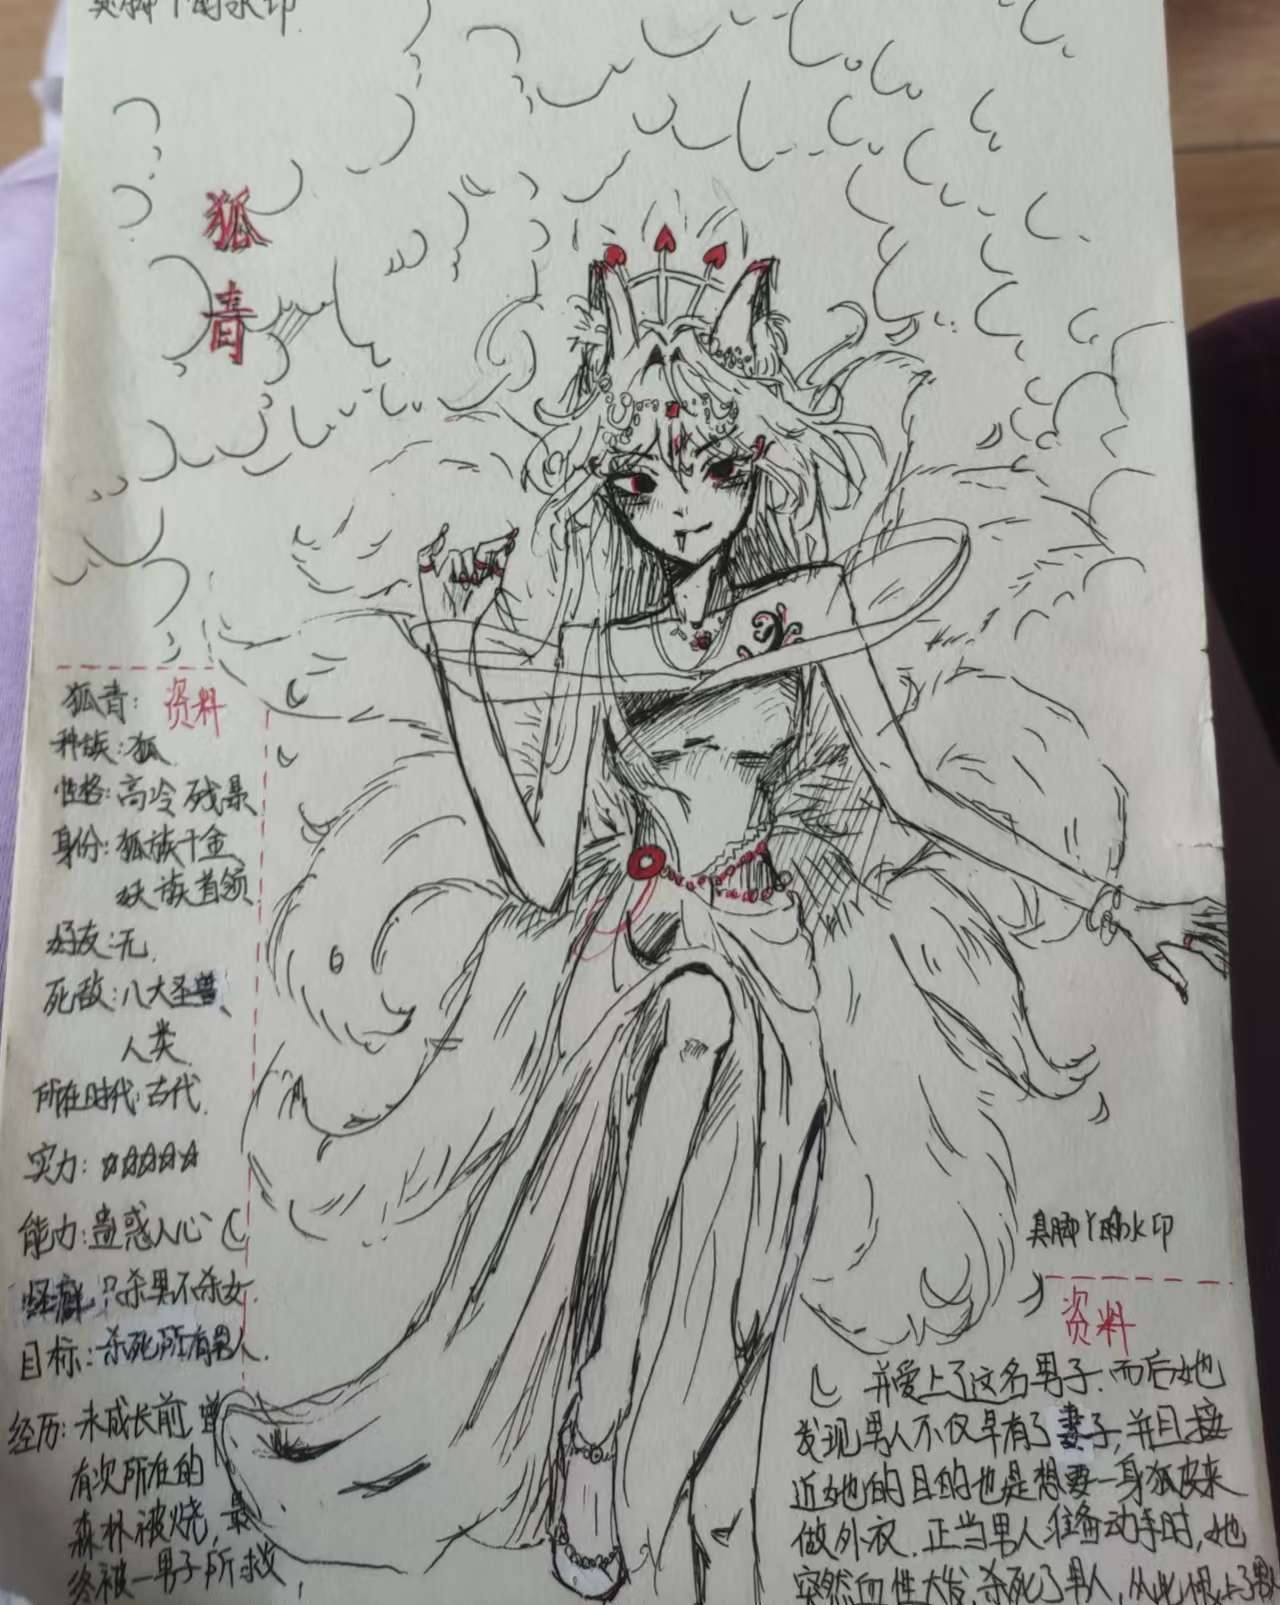 臭脚丫的水印
狐青
狐青：资料
种族：狐
性格：高冷 残暴
身份：狐族千金、
妖族首领
好友：无
死敌：八大圣兽、
人类
所在时代：古代
实力：☆☆☆☆☆
能力：蛊惑人心
怪癖：只杀男不杀女
目标：杀死所有男人
经历：未成长前，曾
有次所在的
森林被烧，最
终被一男子所救，
臭脚丫的水印
资料
并爱上了这名男子，而后她
发现男人不仅早有了妻子，并且接
近她的目的也是想要一身狐皮来
做外衣．正当男人准备动手时，她
突然血性大发，杀死了男人，从此恨上了男人